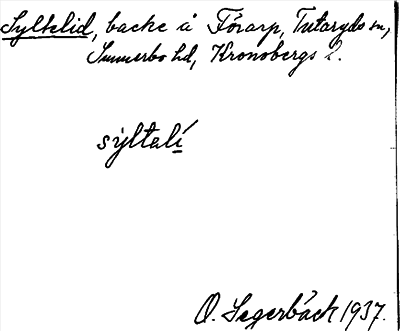 Syltelid, backe å Fòrarp, Tutaryds sn,
Sunnerbo hd, Kronobergs l.
sýltalí
O. Segerbäck 1937.